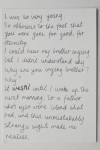 I was so very young
So oblivious to the fact that
you were gone for good, for
eternity.
I could hear my brother crying
but I didn't understand why
Why are you crying brother?
Why?
It wasn't until I woke up the
next morning, to a father
whose eyes were blood shot
red, and this unmistakably
strong might made me
realise.